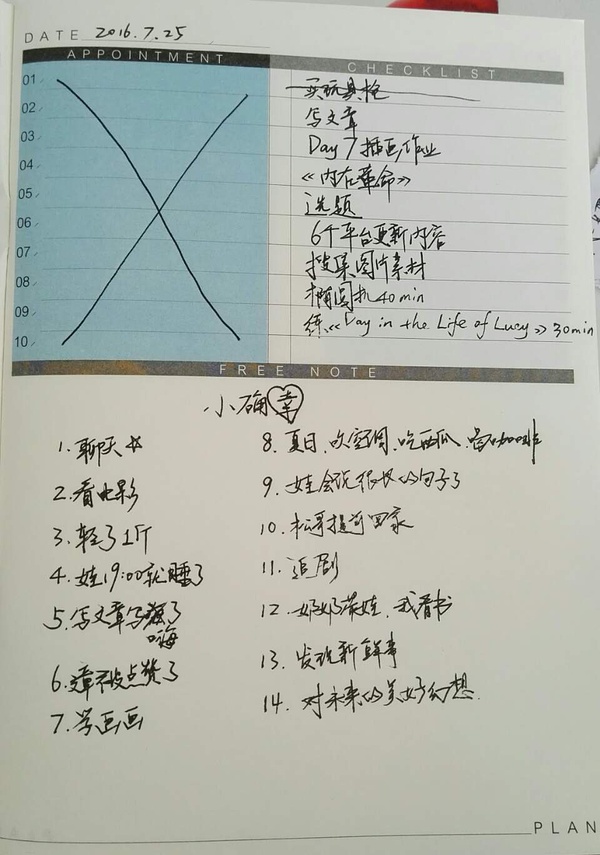 DATE 2016.7.25
APPOINTMENT
01
02
03
04
05
06
07
08
09
10
CHECKLIST
买玩具枪
写文章
Day 7 插画作业
《内在革命》
选题
6个平台更新内容
搜集图片素材
椭圆机 40 min
练《Day in the Life of Lucy》30min
FREE NOTE
小确幸
1. 聊天
2. 看电影
3. 轻了1斤
4. 娃19:00就睡了
5. 写文章写嗨了
6. 文章被点赞了
7. 学画画
8. 夏日、吹空调、吃西瓜、喝咖啡
9. 娃会说很长的句子了
10. 松哥提前回家
11. 追剧
12. 奶奶带娃，我看书
13. 发现新鲜事
14. 对未来的美好幻想.
PLAN